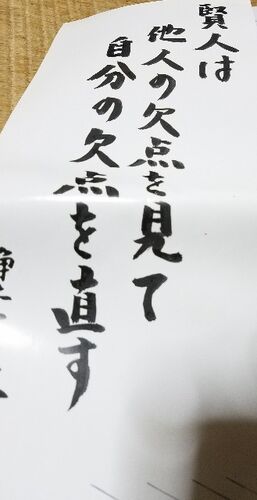 賢人は
他人の欠点を見て
自分の欠点を直す